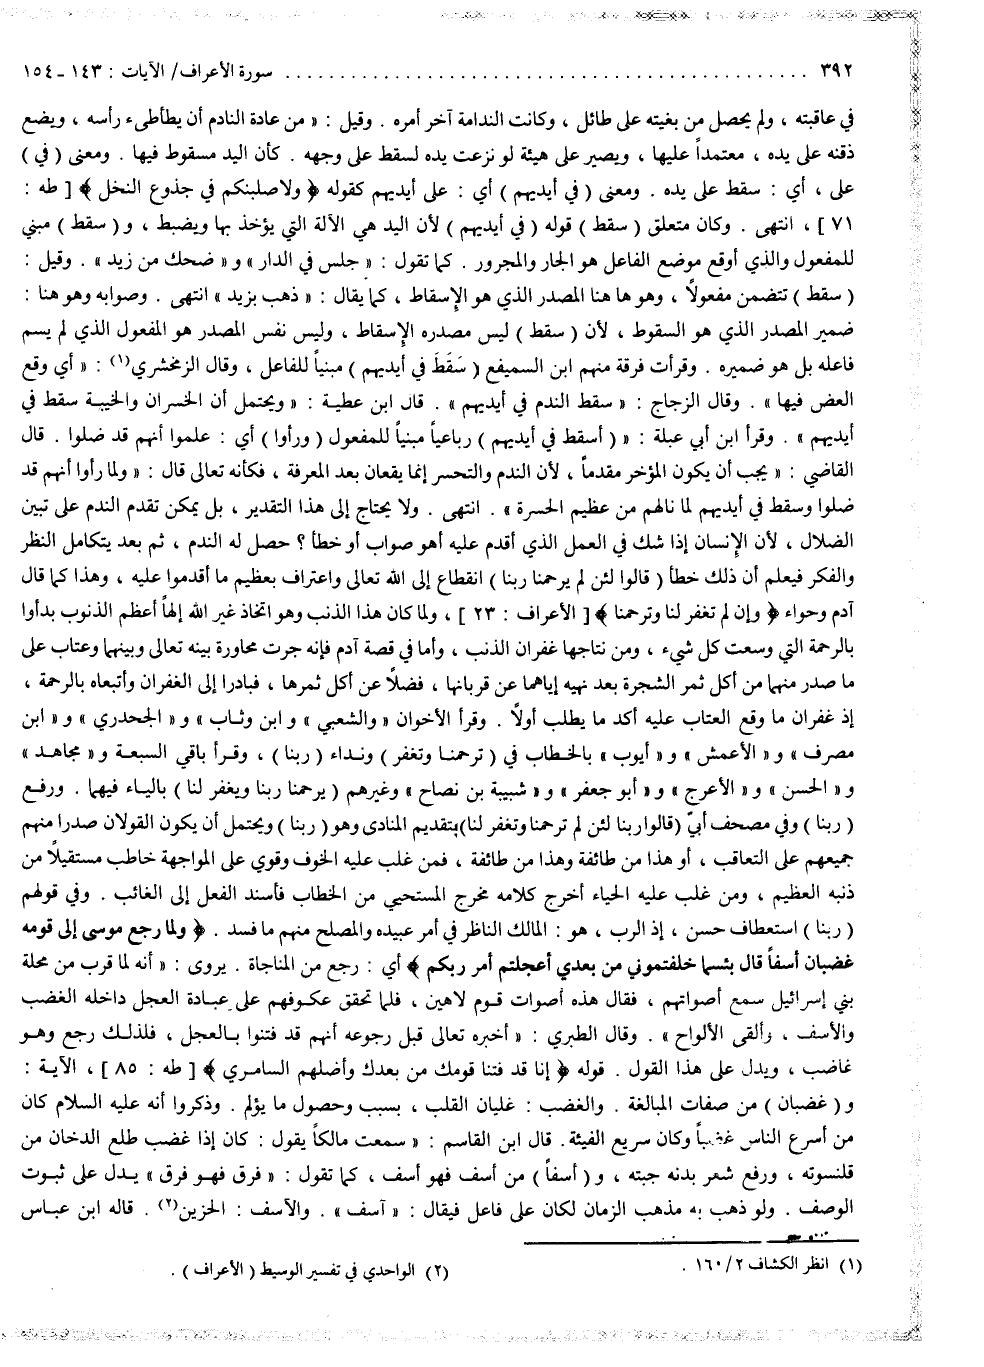 ٣٩٢ . . . . . . . . . . . . . . . . . . . . . . . . . . . . . . . . . . . . . . . . . . . . . . . . سورة الأعراف/ الآيات : ١٤٣ ـ ١٥٤
في عاقبته ، ولم يحصل من بغيته على طائل ، وكانت الندامة آخر أمره . وقيل : « من عادة النادم أن يطأطىء رأسه ، ويضع
ذقنه على يده ، معتمداً عليها ، ويصير على هيئة لو نزعت يده لسقط على وجهه . كأن اليد مسقوط فيها . ومعنى ( في )
على ، أي : سقط على يده . ومعنى ( في أيديهم ) أي : على أيديهم كقوله ﴿ ولاصلبنكم في جذوع النخل ﴾ [ طه :
٧١ ] ، انتهى . وكان متعلق ( سقط ) قوله ( في أيديهم ) لأن اليد هي الآلة التي يؤخذ بها ويضبط ، و ( سقط ) مبني
للمفعول والذي أوقع موضع الفاعل هو الجار والمجرور . كما تقول : « جلس في الدار » و « ضحك من زيد » . وقيل :
( سقط ) تتضمن مفعولاً ، وهو ها هنا المصدر الذي هو الإسقاط ، كما يقال : « ذهب بزيد » انتهى . وصوابه وهو هنا :
ضمير المصدر الذي هو السقوط ، لأن ( سقط ) ليس مصدره الإسقاط ، وليس نفس المصدر هو المفعول الذي لم يسم
فاعله بل هو ضميره . وقرأت فرقة منهم ابن السميفع ( سَقَطَ في أيديهم ) مبنياً للفاعل ، وقال الزمخشري(١) : « أي وقع
العض فيها » . وقال الزجاج : « سقط الندم في أيديهم » . قال ابن عطية : « ويحتمل أن الخسران والخيبة سقط في
أيديهم » . وقرأ ابن أبي عبلة : « ( أسقط في أيديهم ) رباعياً مبنياً للمفعول ( ورأوا ) أي : علموا أنهم قد ضلوا . قال
القاضي : « يجب أن يكون المؤخر مقدماً ، لأن الندم والتحسر إنما يقعان بعد المعرفة ، فكأنه تعالى قال : « ولما رأوا أنهم قد
ضلوا وسقط في أيديهم لما نالهم من عظيم الحسرة » . انتهى . ولا يحتاج إلى هذا التقدير ، بل يمكن تقدم الندم على تبين
الضلال ، لأن الإنسان إذا شك في العمل الذي أقدم عليه أهو صواب أو خطأ ؟ حصل له الندم ، ثم بعد يتكامل النظر
والفكر فيعلم أن ذلك خطأ ( قالوا لئن لم يرحمنا ربنا ) انقطاع إلى الله تعالى واعتراف بعظيم ما أقدموا عليه ، وهذا كما قال
آدم وحواء ﴿ وإن لم تغفر لنا وترحمنا ﴾ [ الأعراف : ٢٣ ] ، ولما كان هذا الذنب وهو اتخاذ غير الله إلهاً أعظم الذنوب بدأوا
بالرحمة التي وسعت كل شيء ، ومن نتاجها غفران الذنب ، وأما في قصة آدم فإنه جرت محاورة بينه تعالى وبينهما وعتاب على
ما صدر منهما من أكل ثمر الشجرة بعد نهيه إياهما عن قربانها ، فضلاً عن أكل ثمرها ، فبادرا إلى الغفران وأتبعاه بالرحمة ،
إذ غفران ما وقع العتاب عليه أكد ما يطلب أولاً . وقرأ الأخوان « والشعبي » و ابن وثاب » و « الجحدري » و « ابن
مصرف » و « الأعمش » و « أيوب » بالخطاب في ( ترحمنا وتغفر ) ونداء ( ربنا ) ، وقرأ باقي السبعة و « مجاهد »
و « الحسن » و « الأعرج » و « أبو جعفر » و « شيبة بن نصاح » وغيرهم ( يرحمنا ربنا ويغفر لنا ) بالياء فيهما . ورفع
( ربنا ) وفي مصحف أبيّ (قالوا ربنا لئن لم ترحمنا وتغفر لنا) بتقديم المنادى وهو ( ربنا ) ويحتمل أن يكون القولان صدرا منهم
جميعهم على التعاقب ، أو هذا من طائفة وهذا من طائفة ، فمن غلب عليه الخوف وقوي على المواجهة خاطب مستقيلاً من
ذنبه العظيم ، ومن غلب عليه الحياء أخرج كلامه مخرج المستحيي من الخطاب فأسند الفعل إلى الغائب . وفي قولهم
( ربنا ) استعطاف حسن ، إذ الرب ، هو : المالك الناظر في أمر عبيده والمصلح منهم ما فسد . ﴿ ولما رجع موسى إلى قومه
غضبان أسفاً قال بئسما خلفتموني من بعدي أعجلتم أمر ربكم ﴾ أي : رجع من المناجاة . يروى : « أنه لما قرب من محلة
بني إسرائيل سمع أصواتهم ، فقال هذه أصوات قوم لاهين ، فلما تحقق عكوفهم على عبادة العجل داخله الغضب
والأسف ، وألقى الألواح » . وقال الطبري : « أخبره تعالى قبل رجوعه أنهم قد فتنوا بالعجل ، فلذلك رجع وهو
غاضب ، ويدل على هذا القول . قوله ﴿ إنا قد فتنا قومك من بعدك وأضلهم السامري ﴾ [ طه : ٨٥ ] ، الآية :
و ( غضبان ) من صفات المبالغة . والغضب : غليان القلب ، بسبب وحصول ما يؤلم . وذكروا أنه عليه السلام كان
من أسرع الناس غضباً وكان سريع الفيئة. قال ابن القاسم : « سمعت مالكاً يقول : كان إذا غضب طلع الدخان من
قلنسوته ، ورفع شعر بدنه جبته ، و ( أسفاً ) من أسف فهو أسف ، كما تقول : « فرق فهو فرق » يدل على ثبوت
الوصف . ولو ذهب به مذهب الزمان لكان على فاعل فيقال : « آسف » . والآسف : الحزين(٢) . قاله ابن عباس
(١) انظر الكشاف ١٦٠/٢ .
(٢) الواحدي في تفسير الوسيط ( الأعراف ) .